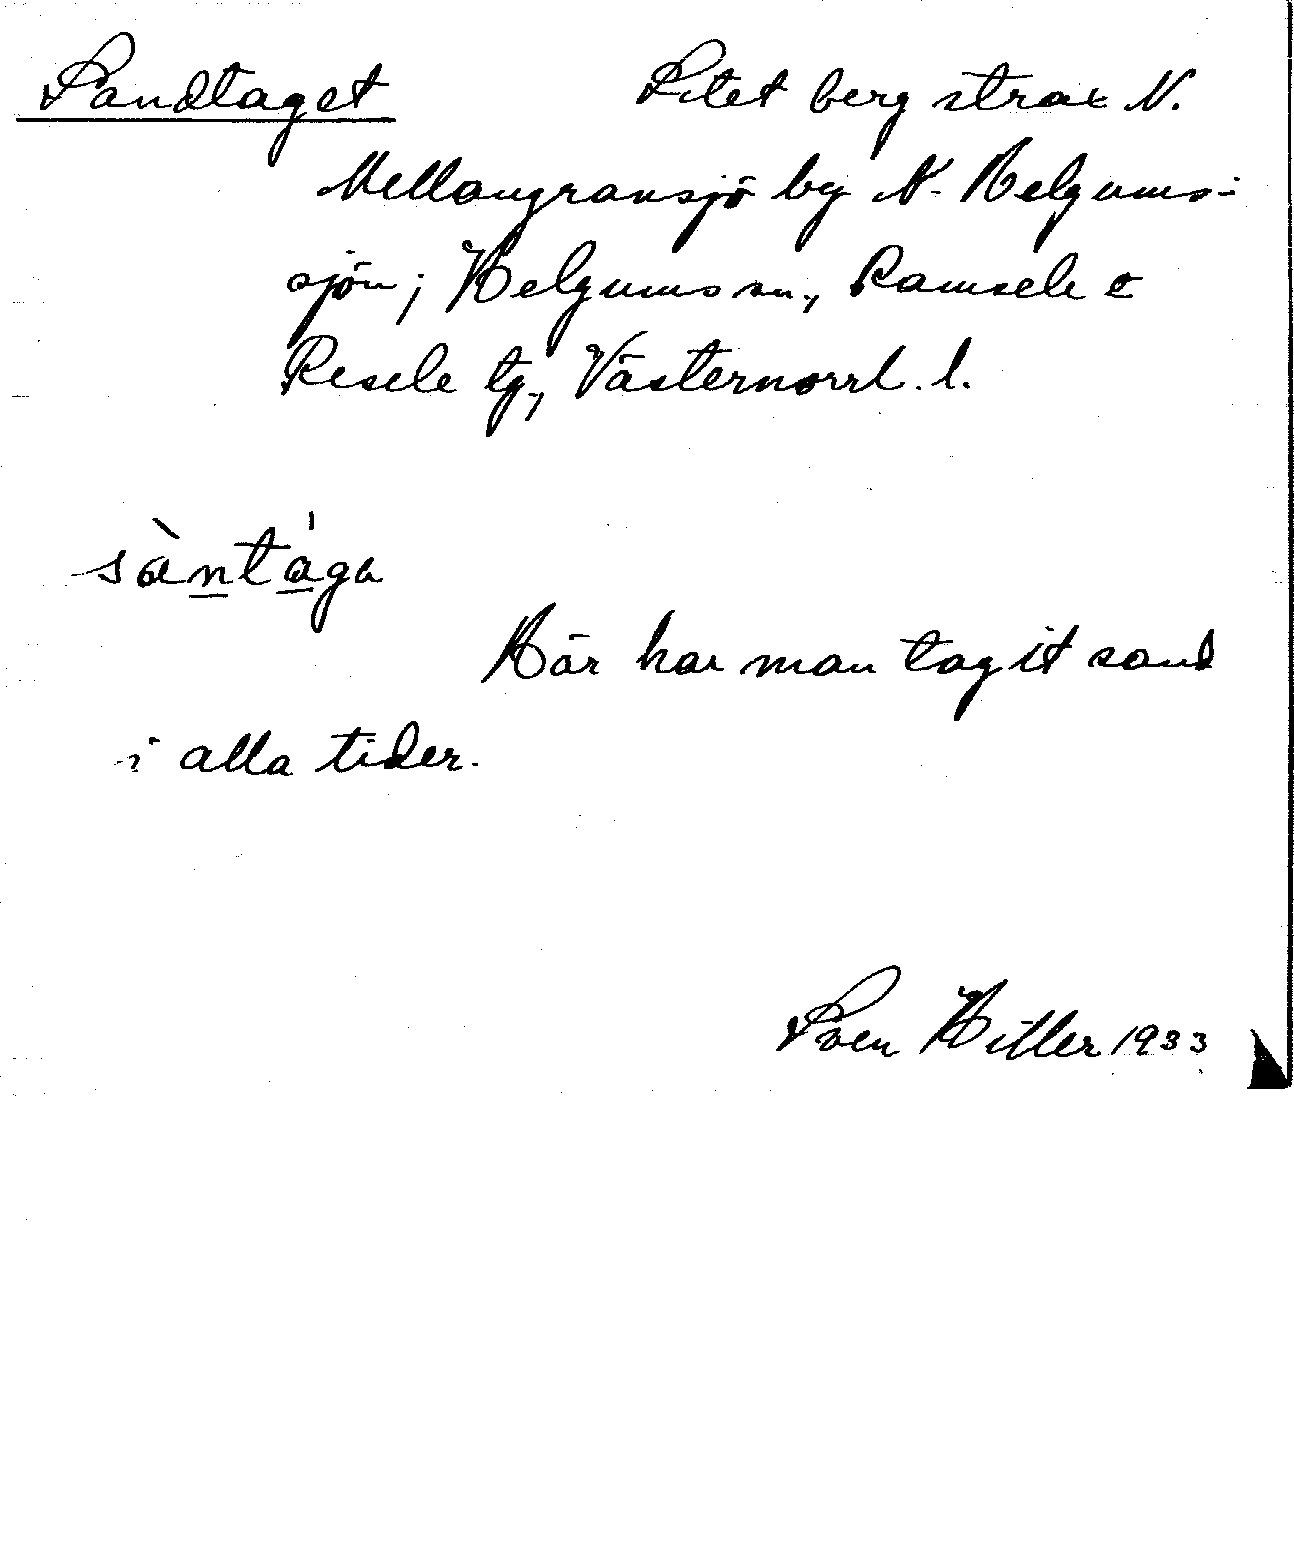 Sandtaget Litet berg strax N.
Mellangransjö by N. Helgums-
sjön; Helgums sn., Ramsele o
Resele tg., Västernorrl. l.
sàntága
Här har man tagit sand
i alla tider.
Sven Hitler 1933